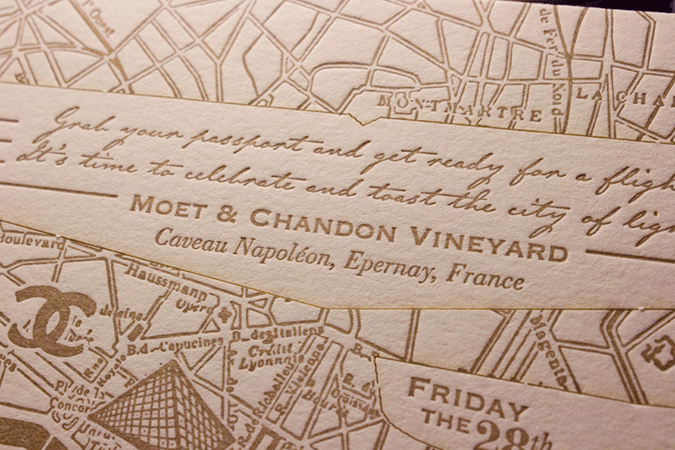 l'Ouest
de Fer du Nord
MONTMARTRE
LA CHA
Grab your passport and get ready for a fligh
It's time to celebrate and toast the city of lig
MOET & CHANDON VINEYARD
Caveau Napoléon, Epernay, France
Boulevard
Haussmann
Opéra
B.d. Capucines
B_des Italiens
Crédit
Lyonnais
R. de Richelieu
R. Vivienne
Pl. de la
Concor
Magenta
FRIDAY
THE 28th